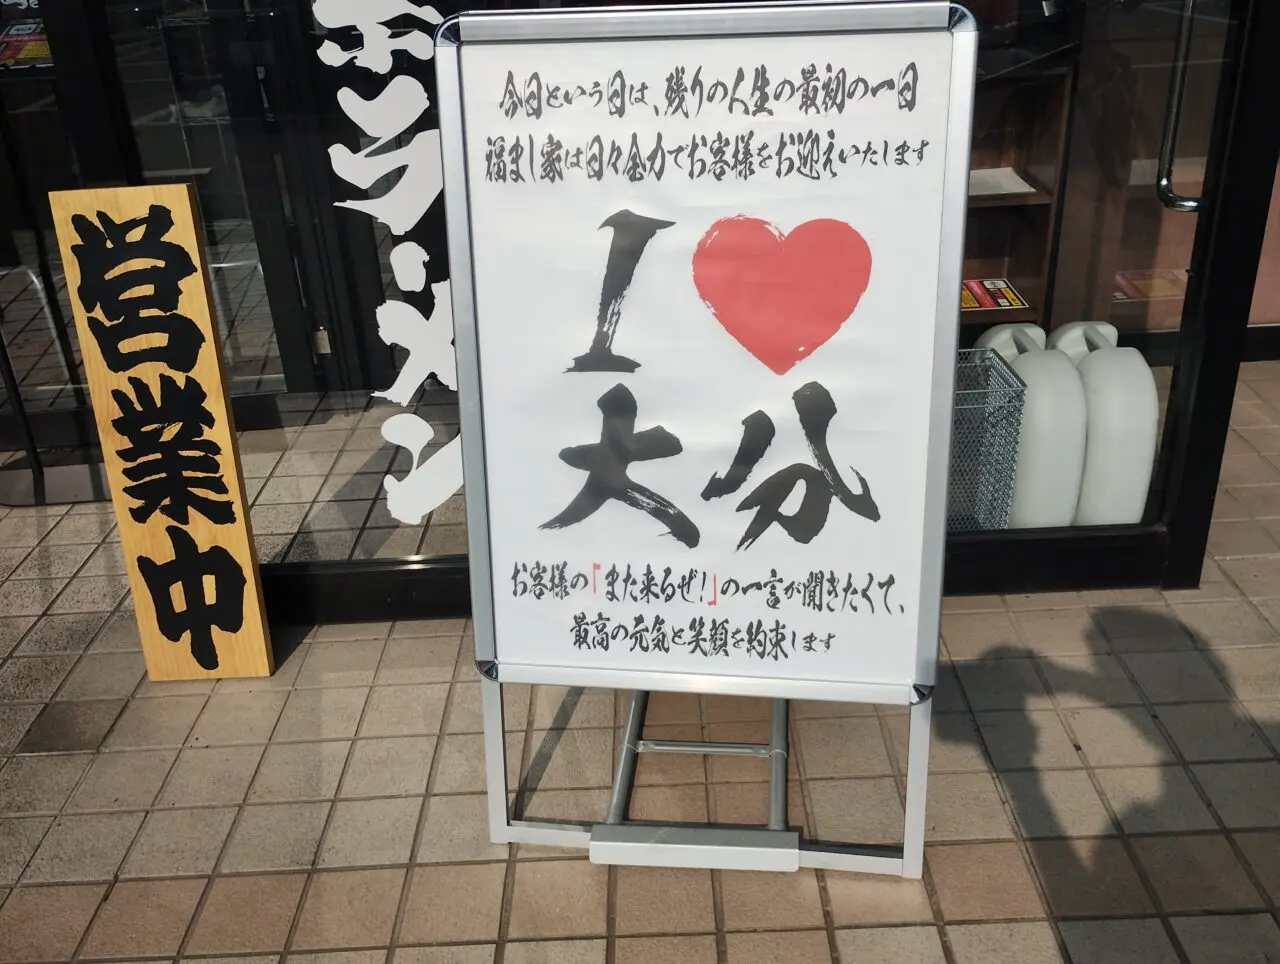 営業中
ラーメン
今日という日は、残りの人生の最初の一日
福まし家は日々全力でお客様をお迎えいたします
I ♥
大分
お客様の「また来るぜ!」の一言が聞きたくて、
最高の元気と笑顔を約束します